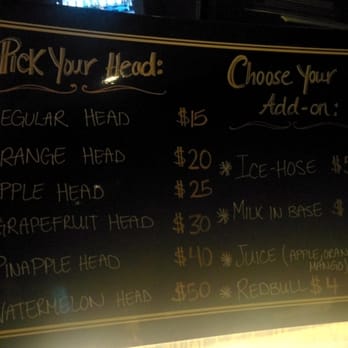 Pick Your Head:
EGULAR HEAD $15
RANGE HEAD $20
PPLE HEAD $25
GRAPEFRUIT HEAD $30
PINAPPLE HEAD $40
WATERMELON HEAD $50
Choose Your
Add-on:
* ICE-HOSE $5
* MILK IN BASE $
* JUICE (APPLE, ORAN
MANGO)
* REDBULL $4